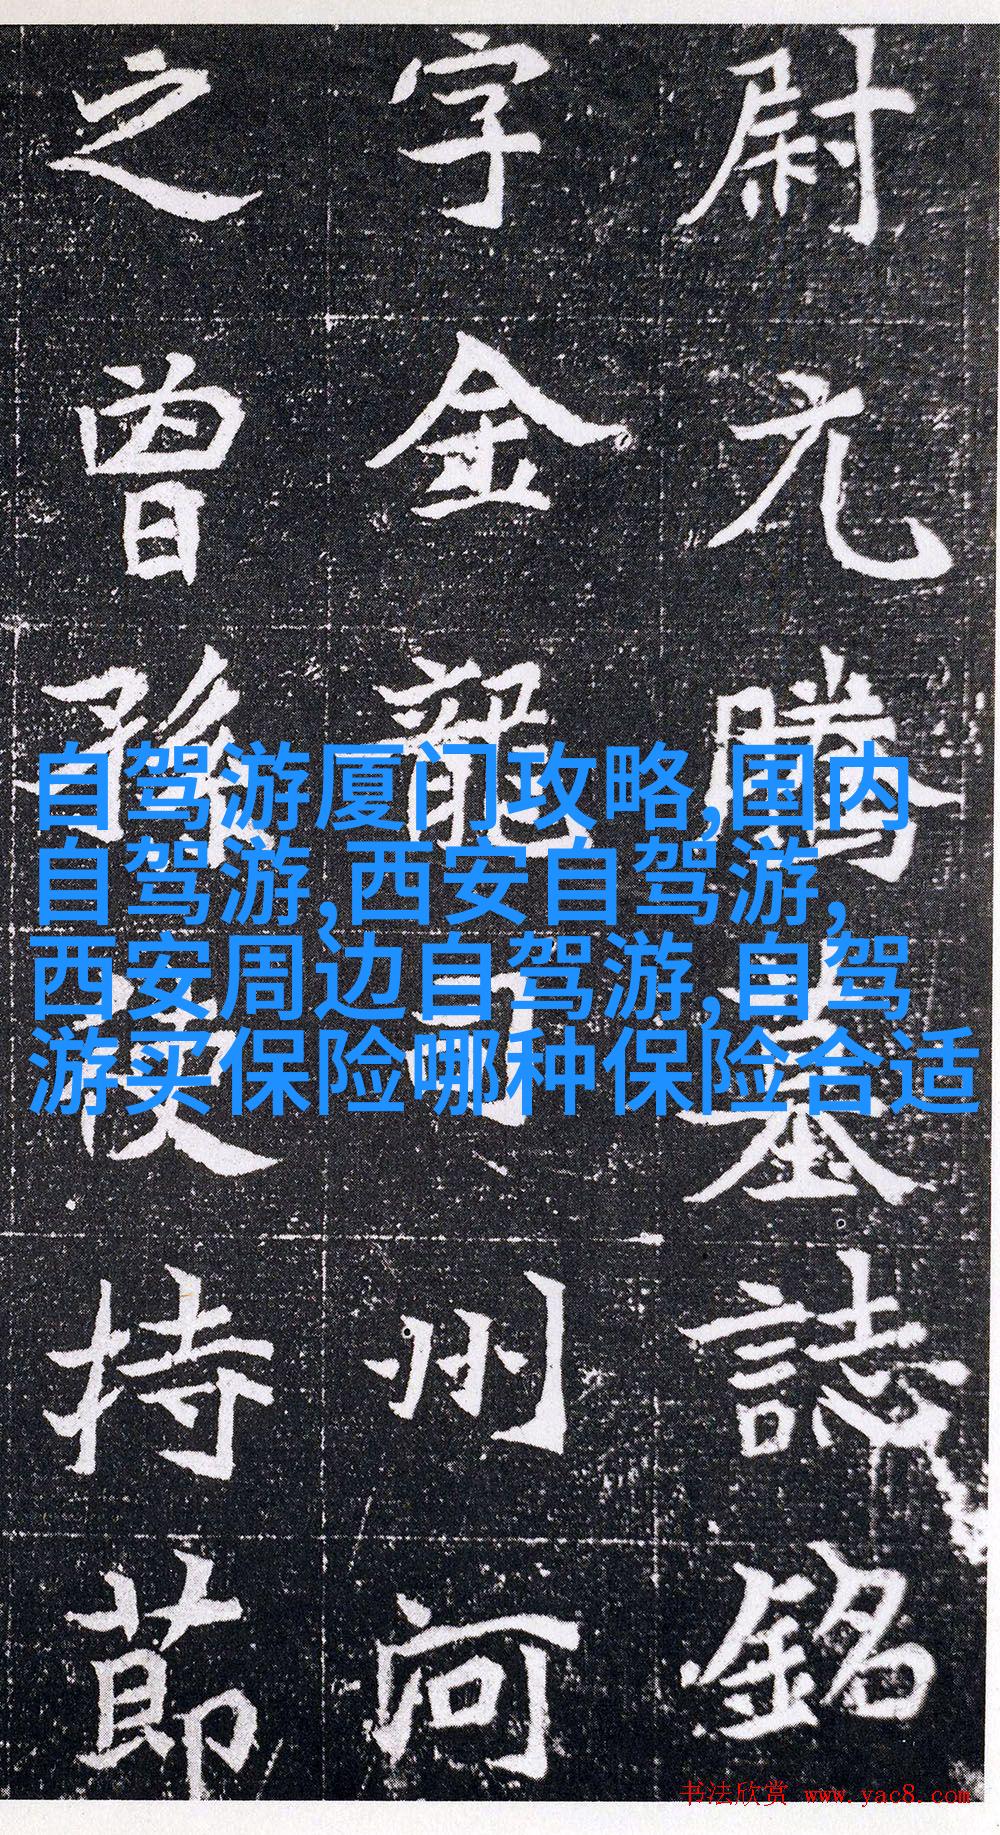 尉元騰墓誌銘
字金龍司州河
之曾孫使持節
自驾游厦门攻略,国内
自驾游,西安自驾游,
西安周边自驾游,自驾
游买保险哪种保险合适
书法欣赏 www.yac8.com